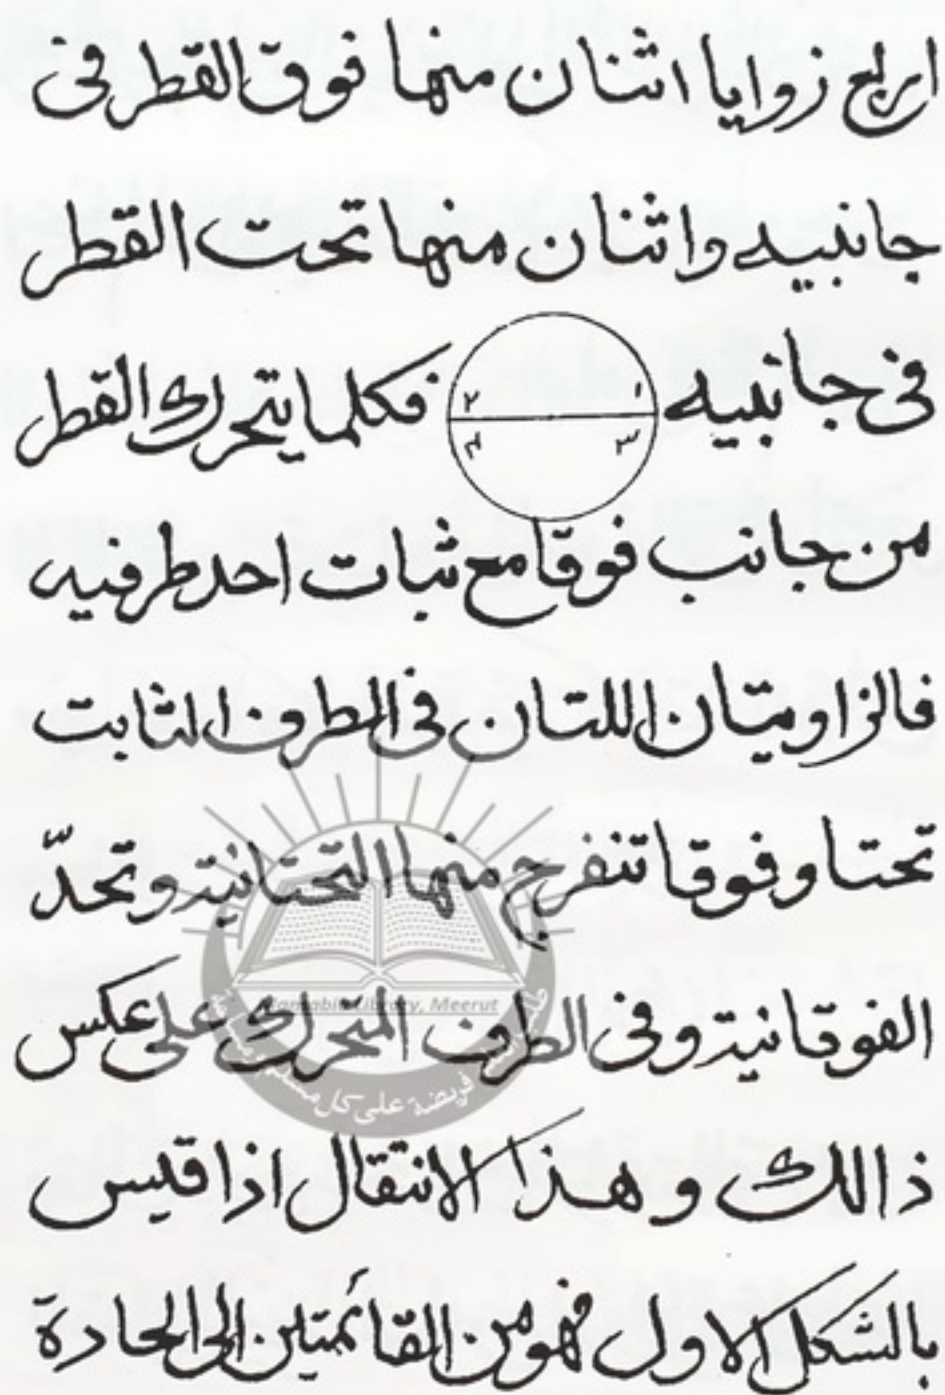 اربع زوايا اثنان منها فوق القطر فى
جانبيه واثنان منها تحت القطر
فى جانبيه ١ ٢ ٣ ٤ فكلما يتحرك القطر
من جانب فوقا مع ثبات احد طرفيه
فالزاويتان اللتان فى الطرف الثابت
تحتا وفوقا تنفرج منها التحتانية وتحدّ
الفوقانية وفى الطرف المتحرك على عكس
ذالك وهذا الانتقال اذا قيس
بالشكل الاول فهو من القائمتين الى الحادة
Library, Meerut
فريضة على كل مسلم